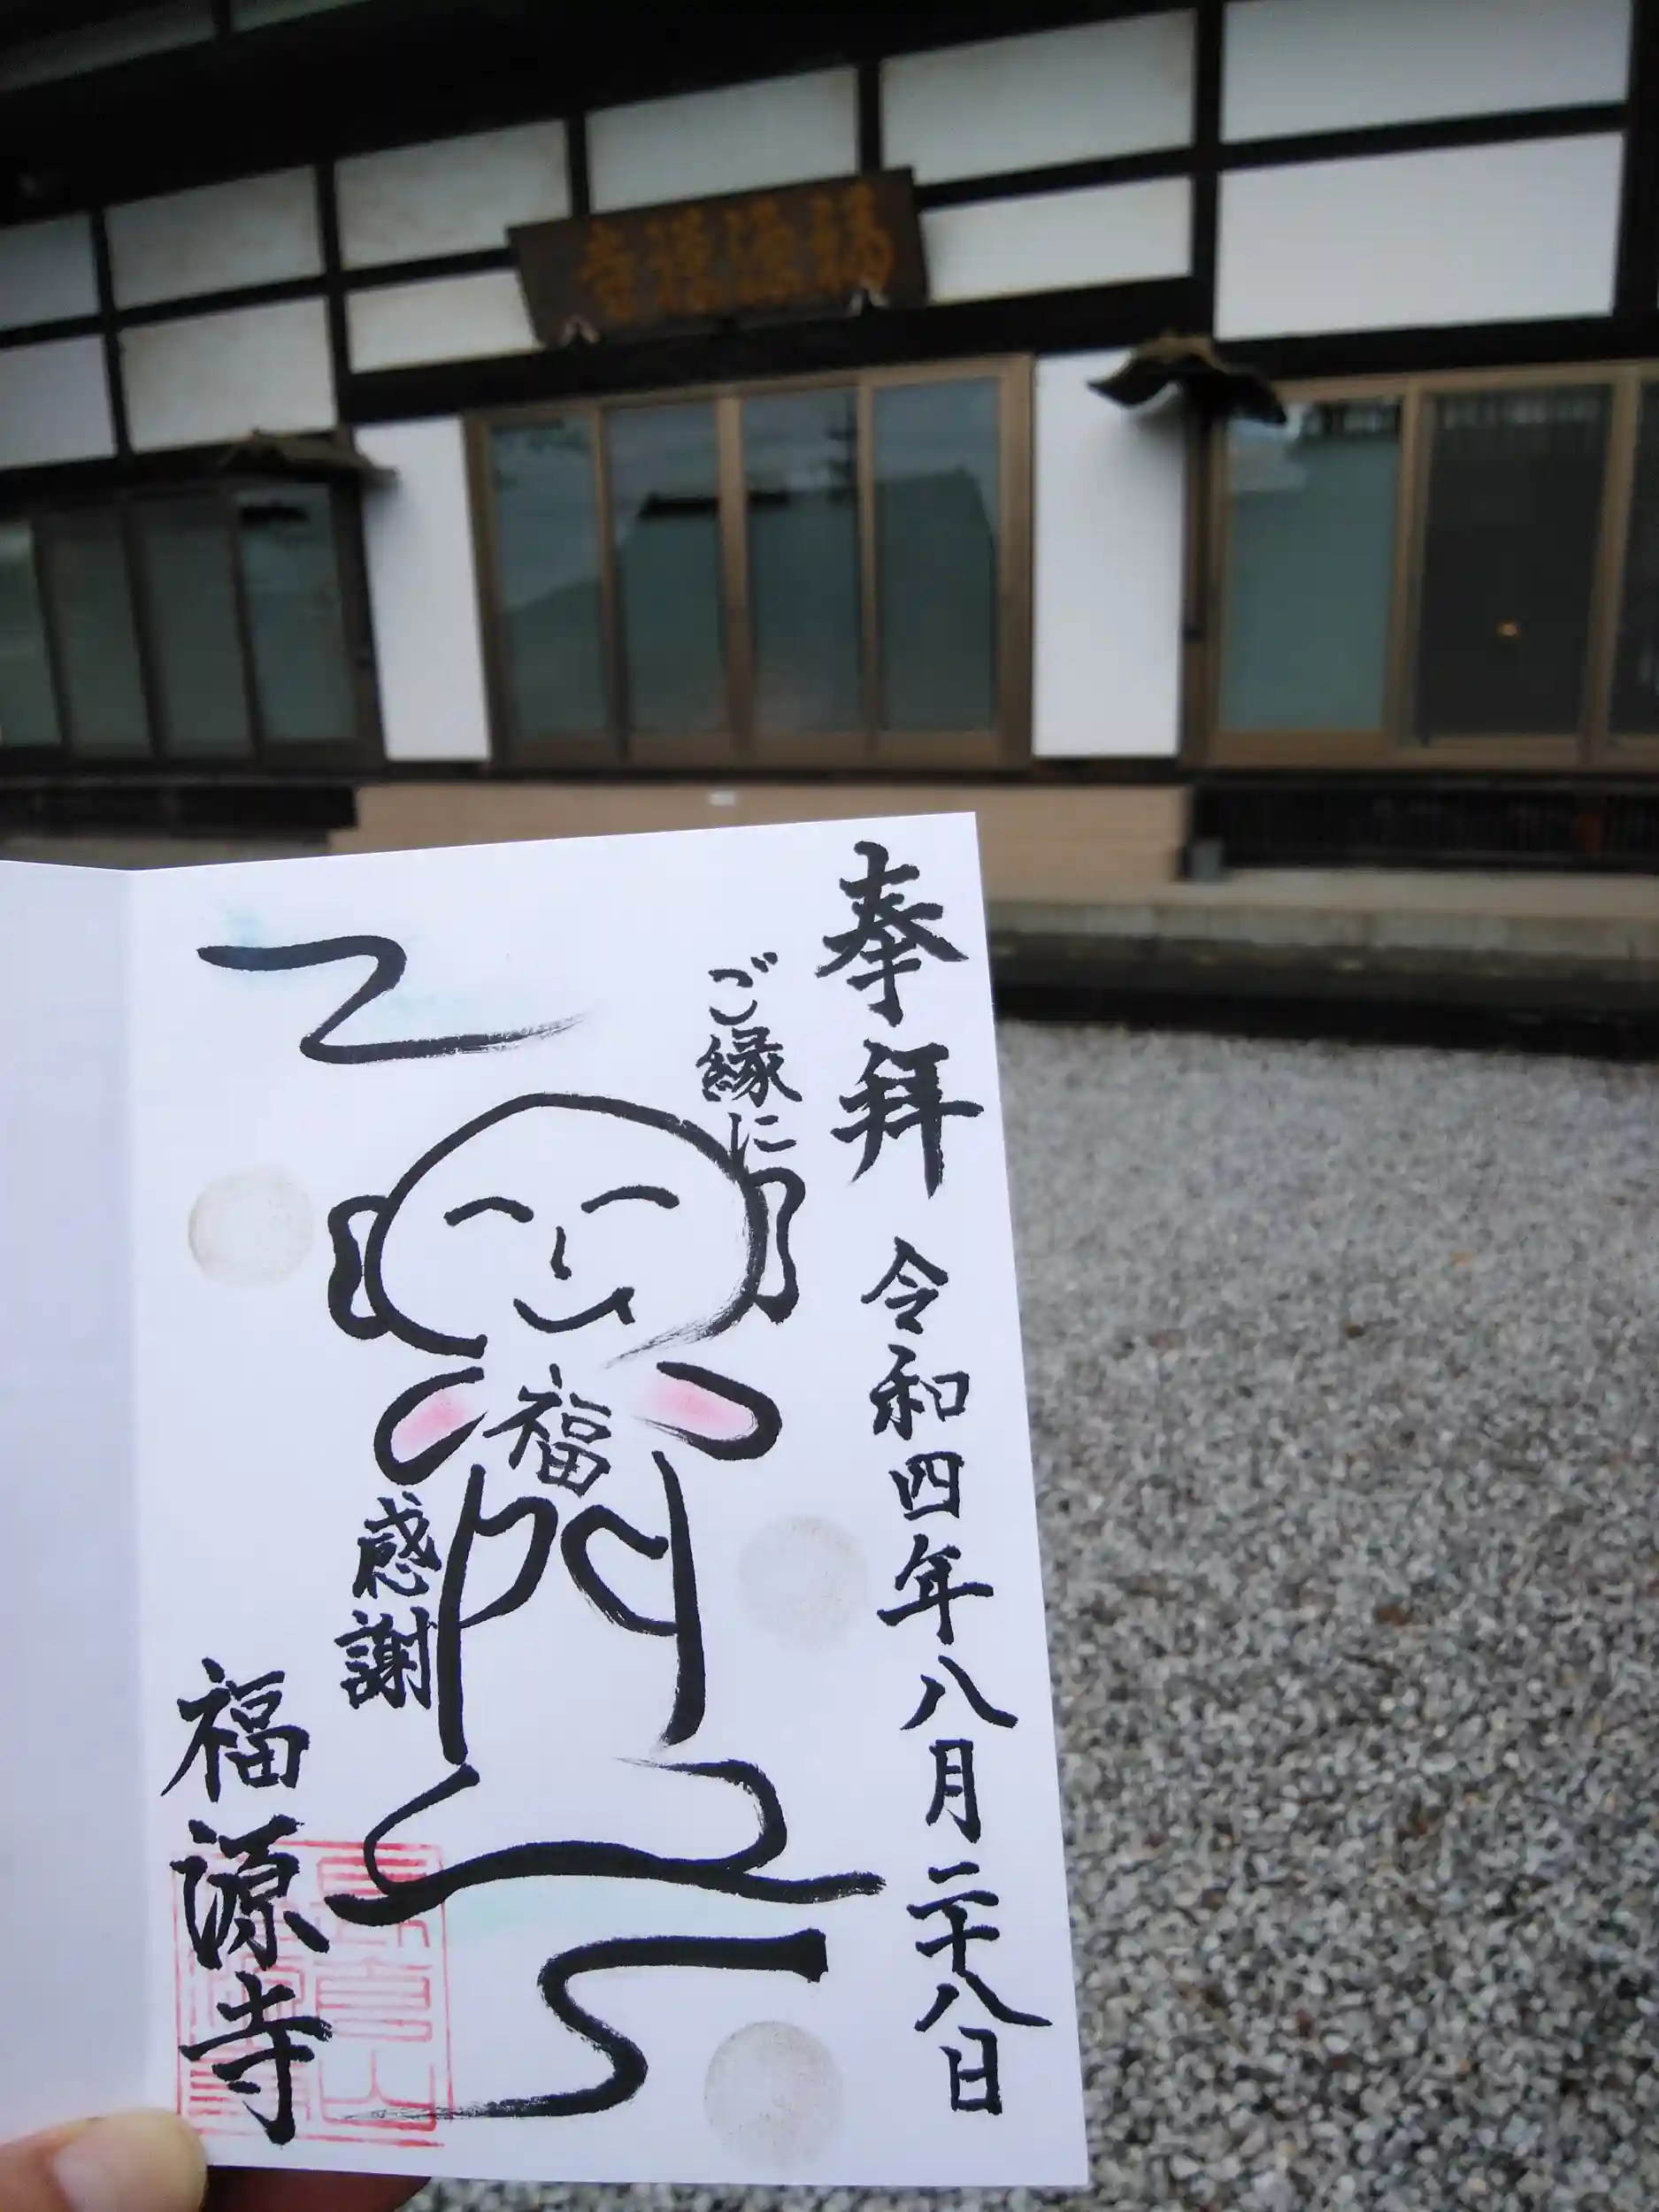 奉拝 令和四年八月二十八日
ご縁に
福
感謝
福源寺